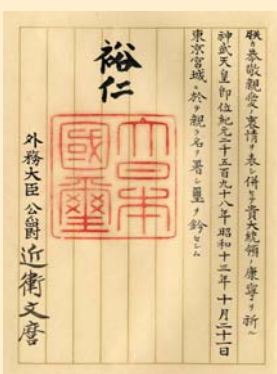 朕カ恭敬親愛ノ衷情ヲ表シ併セテ貴大統領ノ康寧ヲ祈ル
神武天皇即位紀元二千五百九十八年昭和十三年十月二十一日
東京宮城ニ於テ親ラ名ヲ署シ璽ヲ鈐セシム
裕仁
大日本國璽
外務大臣公爵近衛文麿